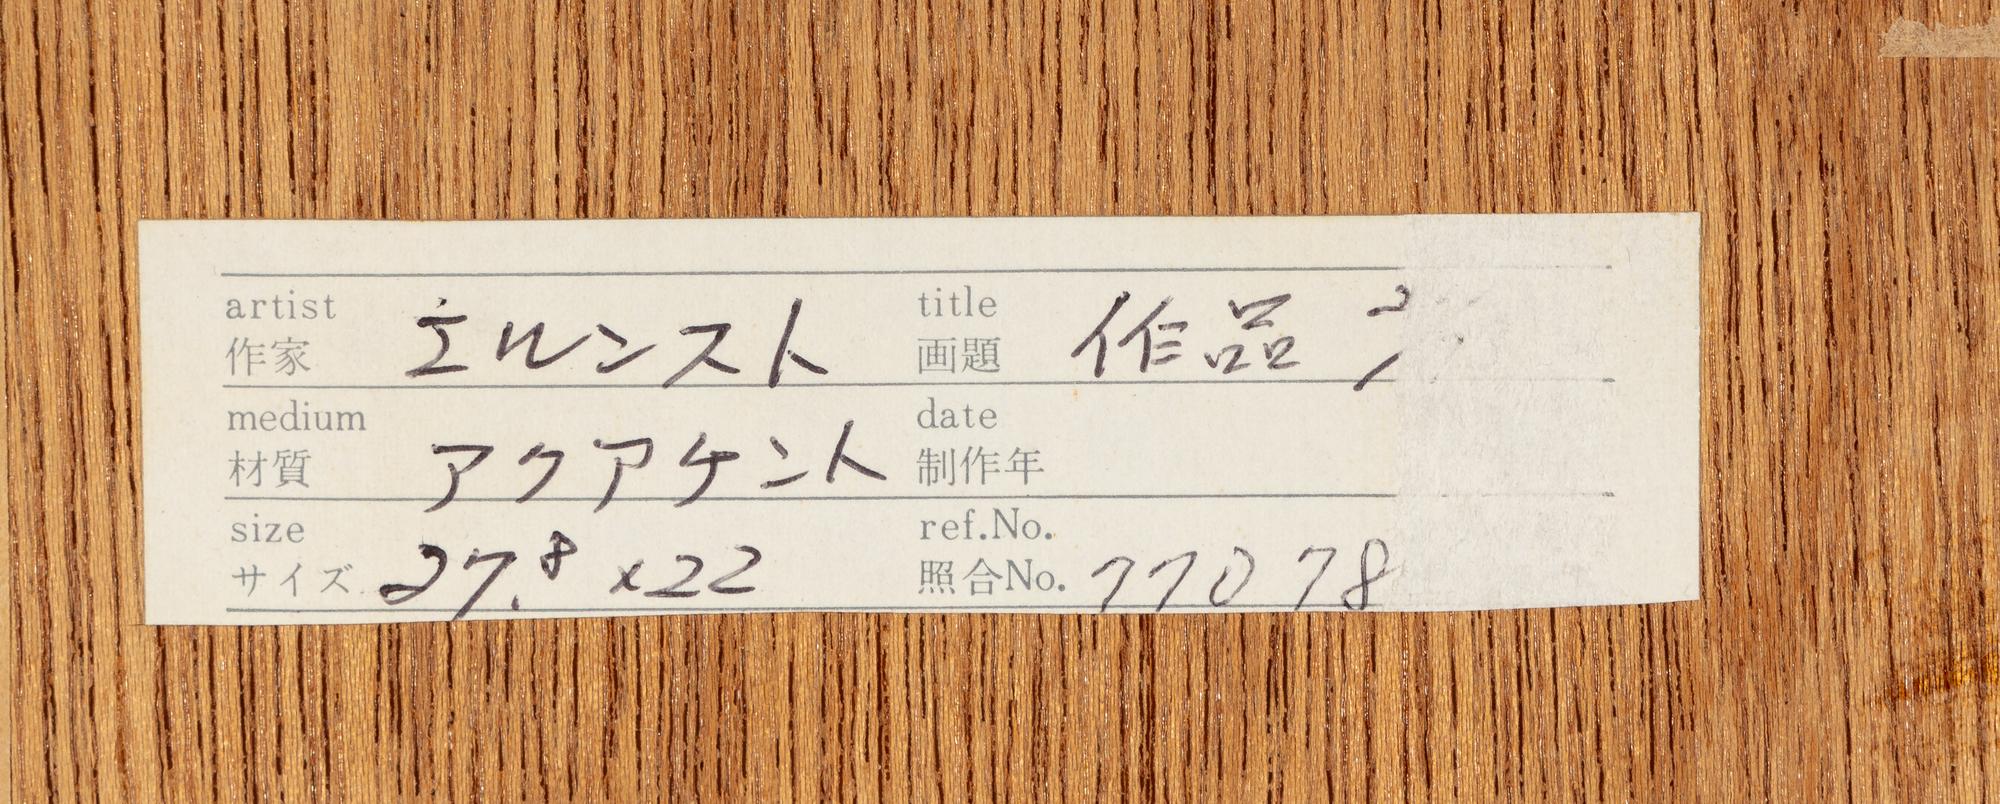 artist エルンスト title 作品
作家 画題
medium アクアケント date
材質 制作年
size ref.No.
サイズ 27.8 x22 照合No. 77078